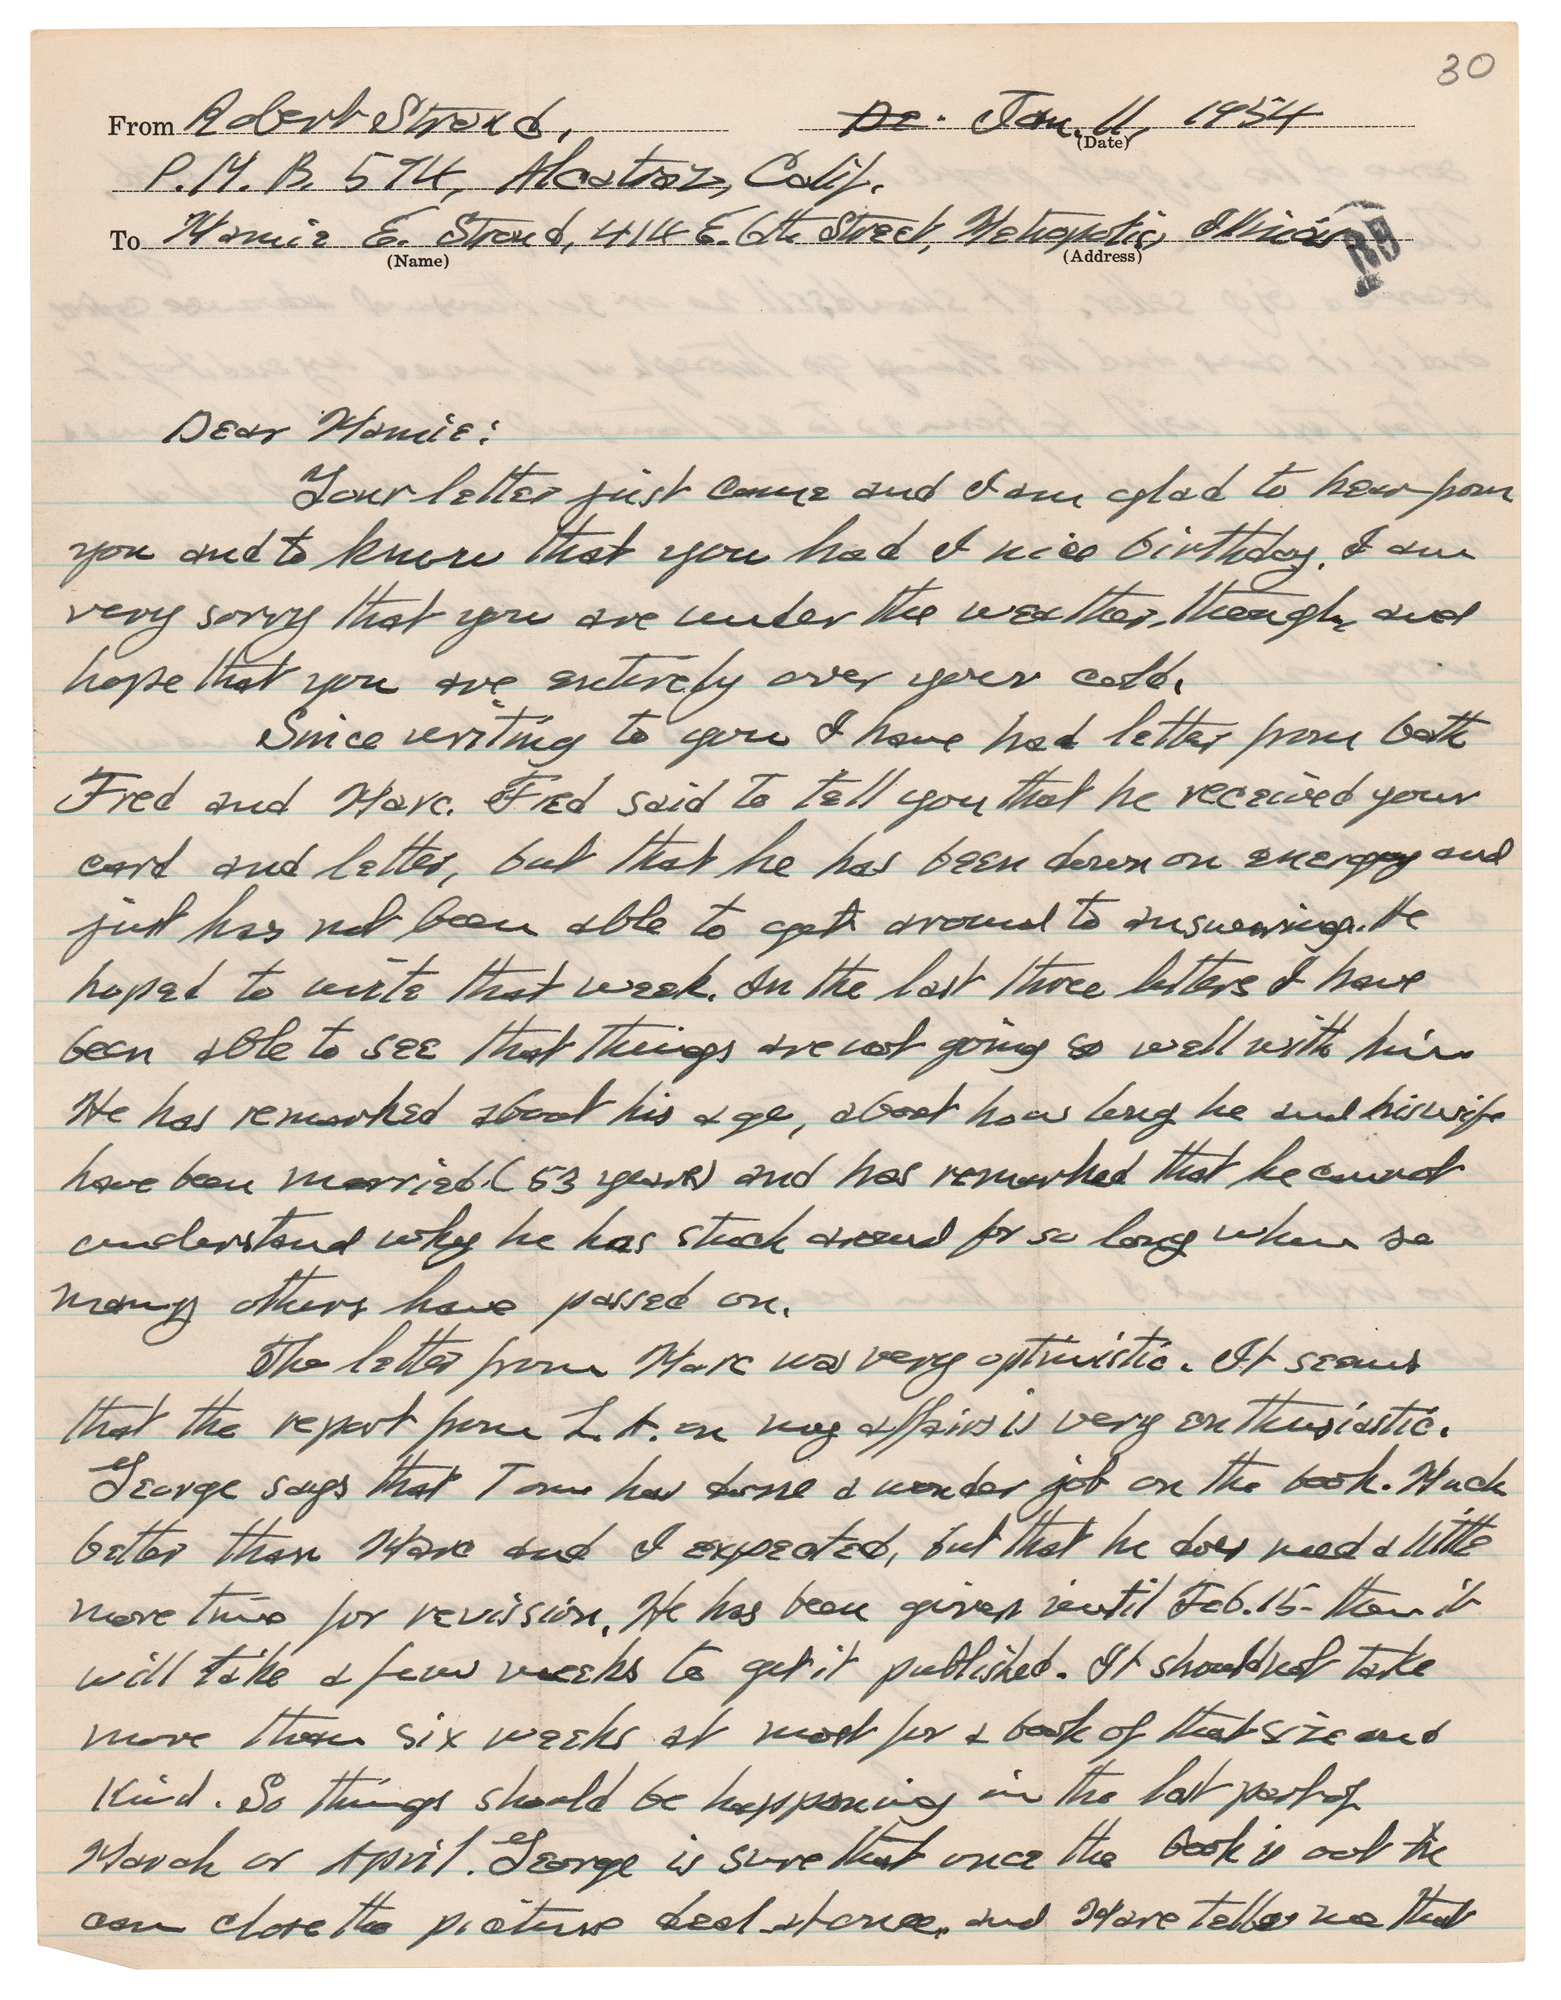 30
From Robert Stroud, De. Jan. 11, 1954
(Date)
P.M.B. 594, Alcatraz, Calif.
To Mamie E. Stroud, 414 E. 6th Street, Metropolis, Illinois
(Name) (Address)
Dear Mamie:
Your letter just came and I am glad to hear from
you and to know that you had I nice birthday. I am
very sorry that you are under the weather, though, and
hope that you are entirely over your cold.
Since writing to you I have had letter from both
Fred and Marc. Fred said to tell you that he received your
card and letter, but that he has been down on energy and
just has not been able to get around to answering. He
hoped to write that week. In the last three letters I have
been able to see that things are not going so well with him
He has remarked about his age, about how long he and his wife
have been married (53 years) and has remarked that he cannot
understand why he has stuck around for so long when so
many others have passed on.
The letter from Marc was very optimistic. It seams
that the report from L.A. on my affairs is very enthusiastic.
George says that Tom has done a wonder job on the book. Much
better than Marc and I expected, but that he does need a little
more time for revission. He has been given until Feb. 15- then it
will take a few weeks to get it published. It should not take
more than six weeks at most for a book of that size and
kind. So things should be happening in the last part of
March or April. George is sure that once the book is out he
can close the picture deal at once, and Marc tells me that